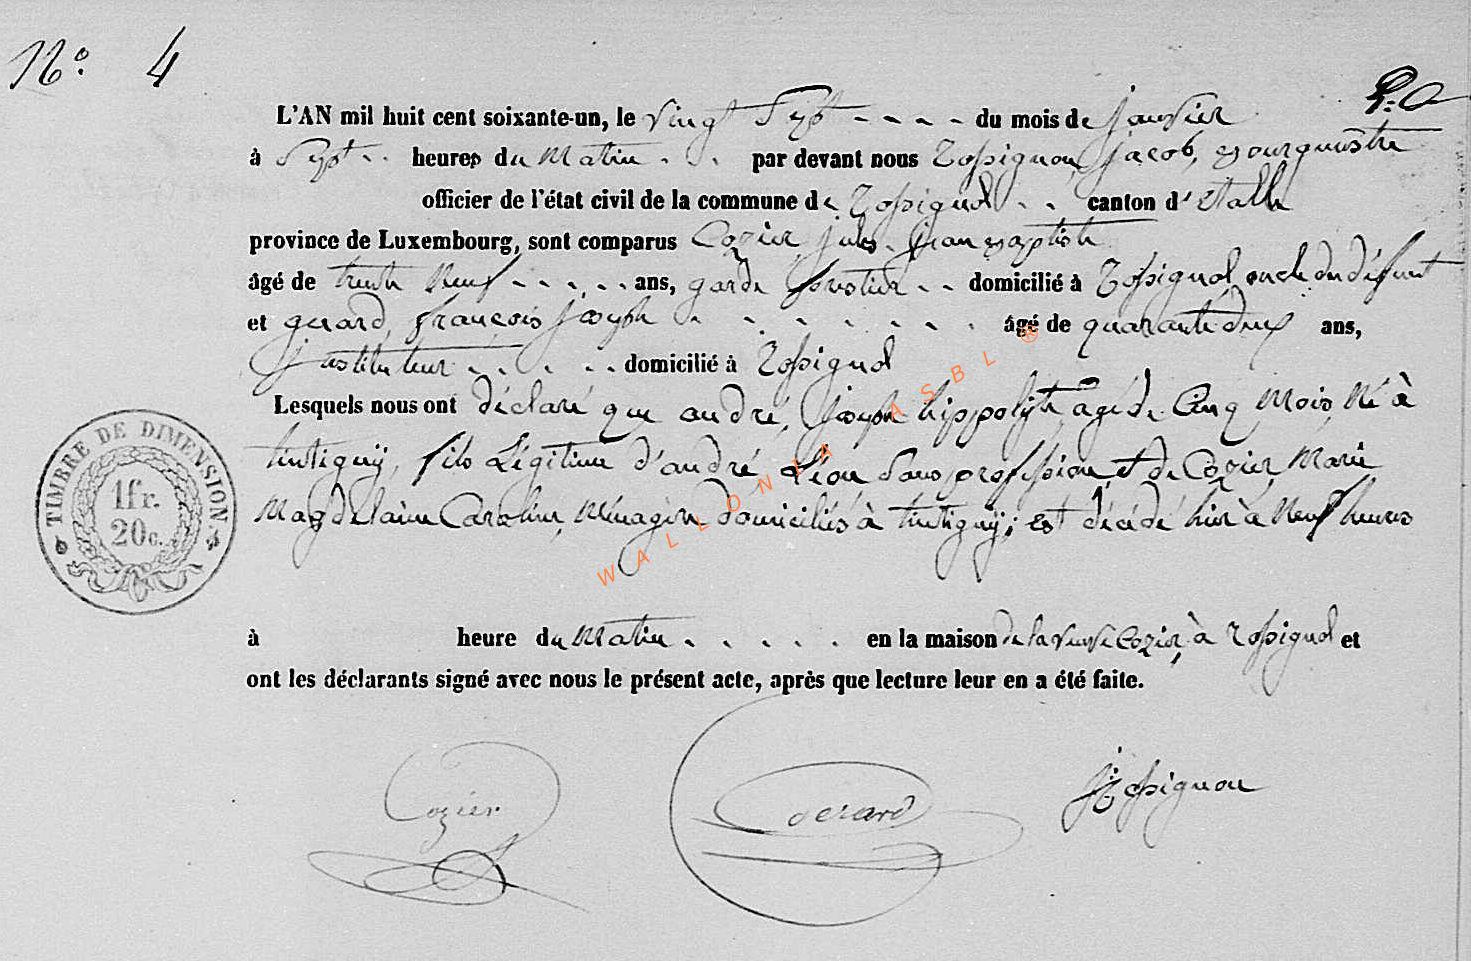 N° 4
L'AN mil huit cent soixante-un, le vingt Sept - - - - du mois de janvier
à Sept - - heures du Matin - - par devant nous Rossignon, jacob, Bourguestre
officier de l'état civil de la commune de Rossignol - - canton d'Etalle
province de Luxembourg, sont comparus Cozier, jules, jean Baptiste
âgé de trente Neuf - - - - - - ans, garde forestier - - domicilié à Rossignol, oncle du défunt
et gerard, françois joseph - - - - - - - âgé de quarante deux ans,
Instituteur - - - - - domicilié à Rossignol
Lesquels nous ont déclaré que andré, Joseph hippolyte, agé de Cinq Mois, Né à
tintigny, fils Légitime d'andré, Léon Sans profession, et de Cozier, Marie
Magdelaine Caroline, Ménagère, domiciliés à tintigny; est décédé hier à Neuf heures
à heure du Matin - - - - - en la maison de la veuve Cozier, à Rossignol et
ont les déclarants signé avec nous le présent acte, après que lecture leur en a été faite.
Cozier Gérard J: Rossignon
TIMBRE DE DIMENSION
1fr.
20c.
WALLONIA ASBL ®